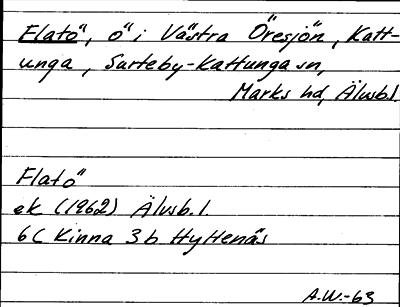 Flatö, ö i Västra Öresjön, Katt-
unga, Surteby-Kattunga sn,
Marks hd, Älvsb.l.
Flatö
ek (1962) Älvsb.l.
6C Kinna 3b Hyttenäs
A.W.-63